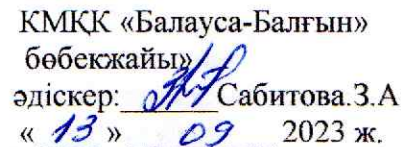 КМҚК «Балауса-Балғын»
бөбекжайы»
әдіскер:______Сабитова.З.А
« 13 » 09 2023 ж.